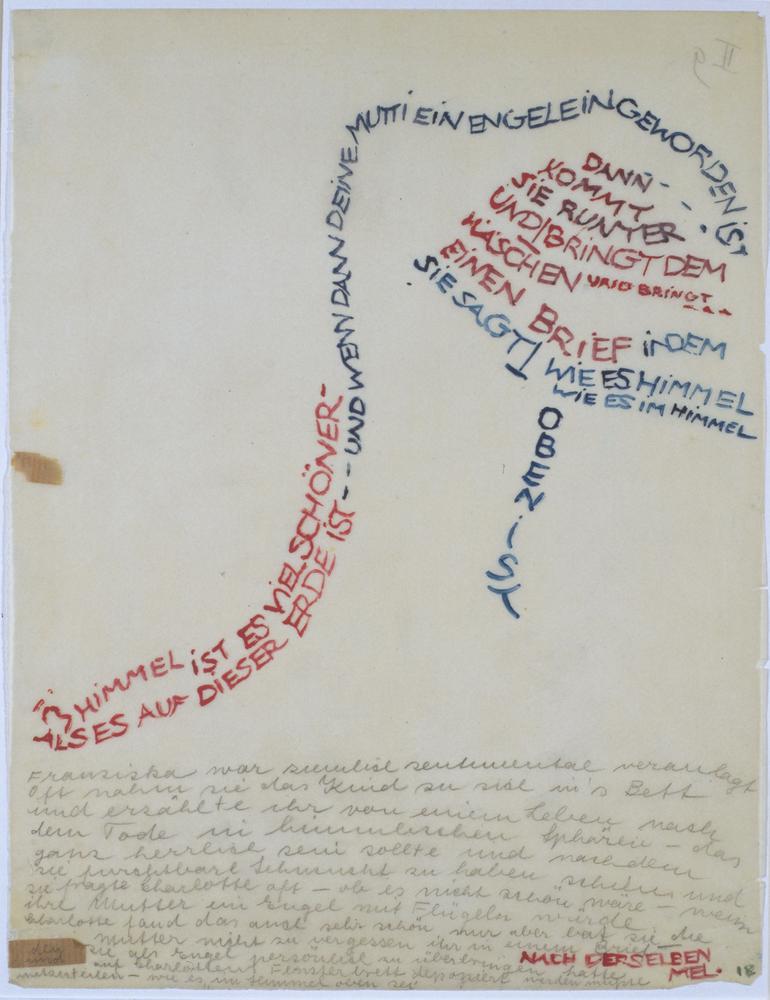 IM HIMMEL IST ES VIEL SCHÖNER-
ALS ES AUF DIESER ERDE IST---UND WENN DANN DEINE MUTTI EIN ENGELEIN GEWORDEN IST
DANN---.
KOMMT
SIE RUNTER
UND BRINGT DEM
HÄSCHEN UND BRINGT...
EINEN BRIEF IN DEM
SIE SAGT WIE ES HIMMEL
WIE ES IM HIMMEL
OBEN IST
Franziska war ziemlich sentimental veranlagt
Oft nahm sie das Kind zu sich in's Bett
und erzählte ihr von einem Leben nach
dem Tode in himmlischen Sphären – das
ganz herrlich sein sollte und nachdem
sie furchtbare Sehnsucht zu haben schien und
sie fragte Charlotte oft – ob es nicht schön wäre – wenn
ihre Mutter ein Engel mit Flügeln würde
Charlotte fand das auch sehr schön nur aber bat sie die
Mutter nicht zu vergessen ihr in einem Brief
den sie als Engel persönlich zu überbringen hatte
und auf Charlottens Fensterbrett deponiert werden müsse
mitzuteilen – wie es im Himmel oben sei
NACH DERSELBEN
MEL.
18
II 9